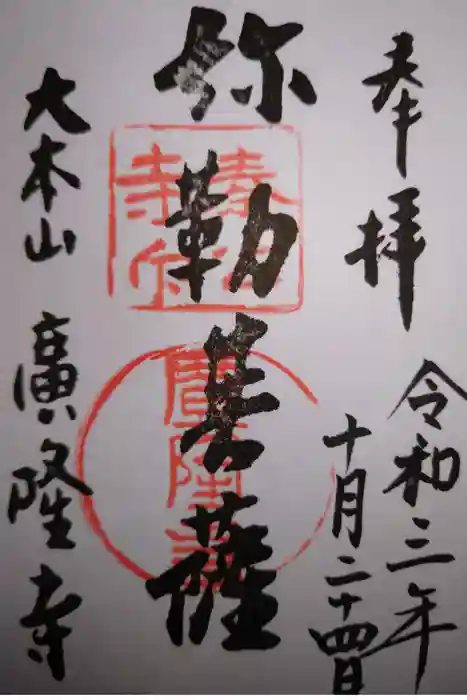 奉拝
令和三年
十月二十四日
弥勒菩薩
大本山 廣隆寺